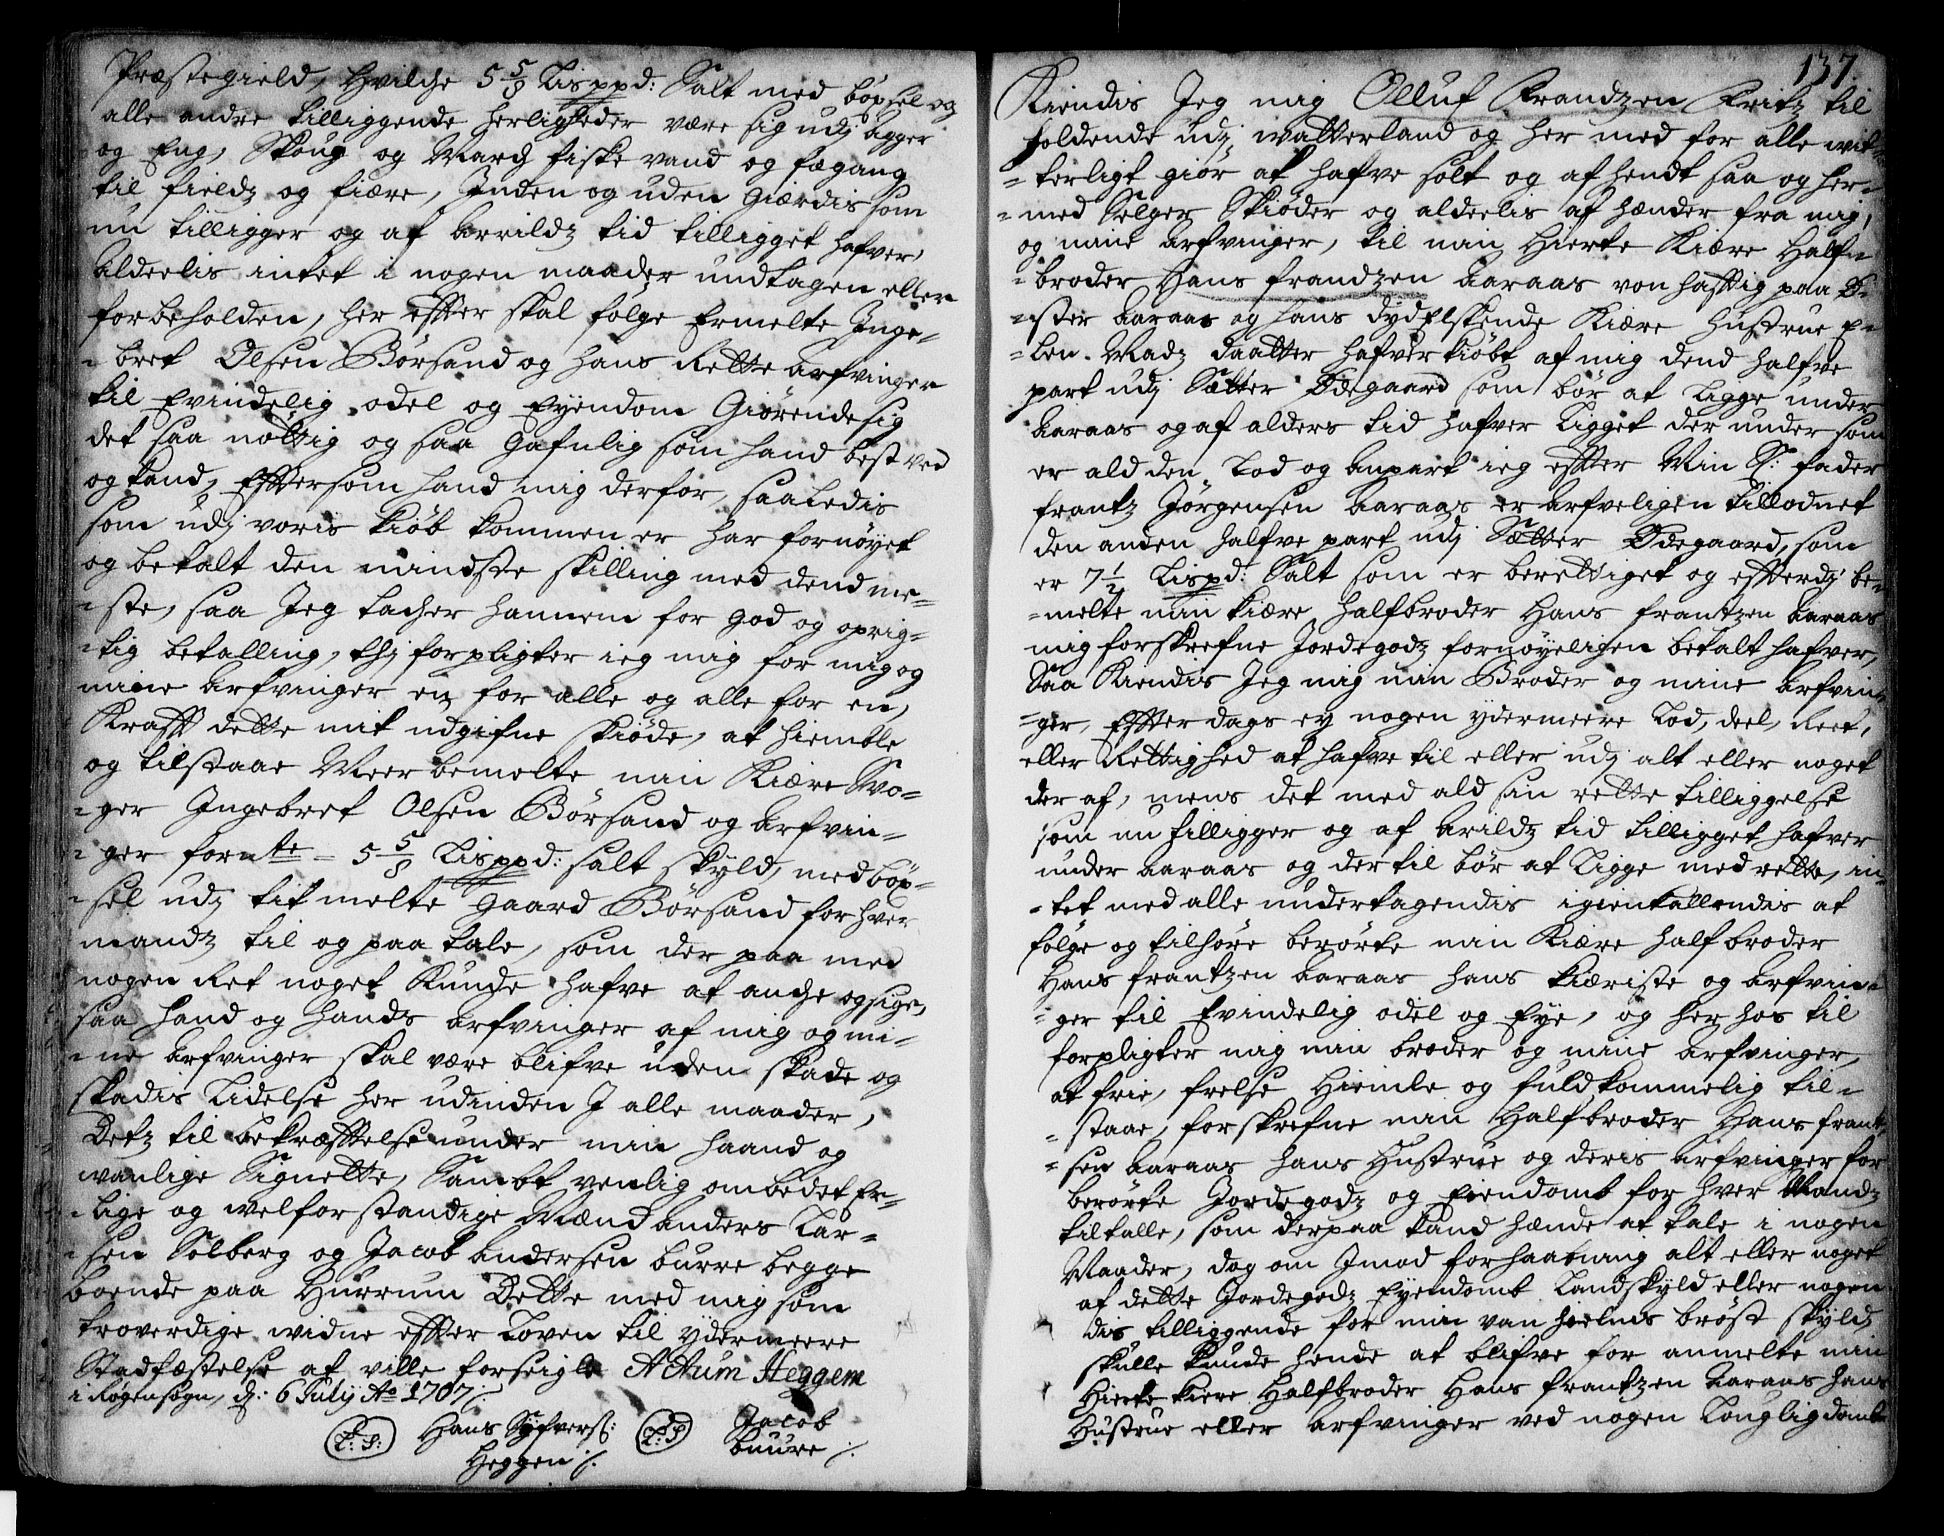 Præstegield, hvilche 5 5/8 Lisppd: Salt med böxsel og
alle andre tilliggende herligheder være sig udj agger
og Eng, Skoug og March fiske vand og fægang
til fieldz og fiære, Inden og uden Giærdis som
nu tilligger og af Arrildz tid tilligget hafver,
Aldeelis intet i nogen maader undtagen eller
forbeholden, her effter skal følge Ermelte Inge-
-bret Olsen Börsand og hans Rette arfvinger
til Evindelig odel og Eyendom Giørende sig
det saa nöttig og saa Gafnlig som hand best ved
og kand, Effttersom hand mig derfor, saaledis
som udj voris kiöb kommen er har fornöyet
og betalt den mindste skilling med dend me-
-ste, saa Jeg tacher hannem for god og oprig-
-tig betalling, thj forpligter ieg mig for mig og
mine arfvinger en for alle og alle for en,
Krafft dette mit udgifne skiöde, at hiemble
og tilstaae Meer bemelte min Kiære Svo-
-ger Ingebret Olsen Börsand og Arfvin-
-ger fornte - 5 5/8 Lisppd: salt skyld, med böx-
-sel udj tit melte Gaard Börsand for hver
mandz til og paa tale, som der paa med
nogen Ret noget Kunde hafve at anche og sige,
saa hand og hands arfvinger af mig og mi-
-ne arfvinger skal være blifve uden skade og
skadis Lidelse her udinden J alle maader,
Detz til bekræfftelse under min haand og
vanlige Signette, Sambt venlig ombedet Er-
-lige og welforstandige Mænd anders Lar-
-sen Solberg og Jacob andersen burre begge
boende paa Hurrum Dette med mig som
troverdige widne effter Loven til ydermeere
Stadfæstelse at ville forseigle Actum Heggem
i Rogensogn, d: 6 July Ao 1707
L: S: Hans Syfvers: L: S Jacob
Heggen /. buure /.
137.
Kiendis Jeg mig Olluf Frandzen Kritz til
holdende udj watterland og her med for alle wit-
-terligt giör at hafve solt og af hendt saa og her-
-med Selger Skiöder og aldeelis af hænder fra mig,
og mine arfvinger, til min Hierte Kiære Half-
-broder Hans frandzen Aaraas von hafftig paa Ö-
-ster Aaraas og hans dydElskende Kiære Hustrue E-
-len Madz daatter hafver kiöbt af mig dend halfve
part udj Sætter Ödegaard som bör at Ligge under
Aaraas og af alders tid hafver Ligget der under som
er ald den Lod og anpart ieg effter Min S: fader
frantz Jörgensen Aaraas er arfveligen tillodnet
den anden halfve part udj Sætter Ödegaard, som
er 7 1/2 Lispd: Salt som er berettiget og effterdj be-
-melte min kiære halfbroder Hans frantzen Aaraas
mig forskrefne Jordegodz fornöyeligen betalt hafver,
Saa Kiendis Jeg mig min Broder og mine arfvin-
-ger, Effter dags ey nogen ydermeere Lod, deel, Reet,
eller Rettighed at hafve til eller udj alt eller noget
der af, mens det med ald sin rette tilliggelse
som nu tilligger og af Arildz tid tilligget hafver
under Aaraas og der til bör at Ligge med rette, in-
-tet med alle undertagendis igienkallendis at
fölge og tilhöre berörte min Kiære halfbroder
Hans frantzen Aaraas hans kiæriste og arfvin-
-ger til Evindelig odel og Eye, og her hos til
forpligter mig min broder og mine arfvinger,
at frie, frelse Hiemle og fuldkommelig til-
-staae, forskrefne min Halfbroder Hans frant-
-sen Aaraas hans Hustrue og deris arfvinger for
berörte Jordegodz og Eiendomb for hver Mandz
tiltalle, som derpaa kand hænde at tale i nogen
Maader, dog om Jmod forhaabning alt eller noget
af dette Jordegodz Eyendomb Landskyld eller nogen
dis tilliggende for min van hielmds bröst skyld,
skulle kunde hende at blifve for anmelte min
Hierte kiere Halfbroder Hans frantzen Aaraas hans
Hustrue eller arfvinger ved nogen Louglig domb